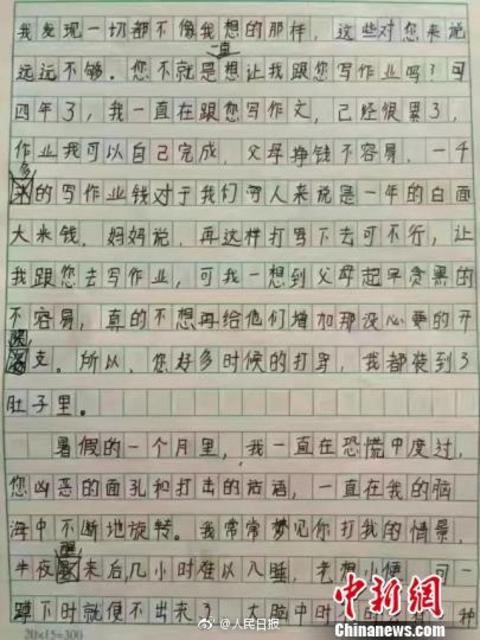 我发现一切都不像我想的那样，这些对您来说
远远不够。您不就是一直想让我跟您写作业吗？可
四年了，我一直在跟您写作文，已经很累了，
作业我可以自己完成，父母挣钱不容易，一千
多的写作业钱对于我们穷人来说是一年的白面
大米钱，妈妈说，再这样打骂下去可不行，让
我跟您去写作业，可我一想到父母起早贪黑的
不容易，真的不想再给他们增加那没必要的开
支。所以，您好多时候的打骂，我都装到了
肚子里。
暑假的一个月里，我一直在恐慌中度过，
您凶恶的面孔和打击的话语，一直在我的脑
海中不断地旋转。我常常梦见你打我的情景，
半夜醒来后，几小时难以入睡，老想小便，可一
蹲下时就便不出来了，大脑中时 种
20×15=300
@人民日报
中新网
Chinanews.com